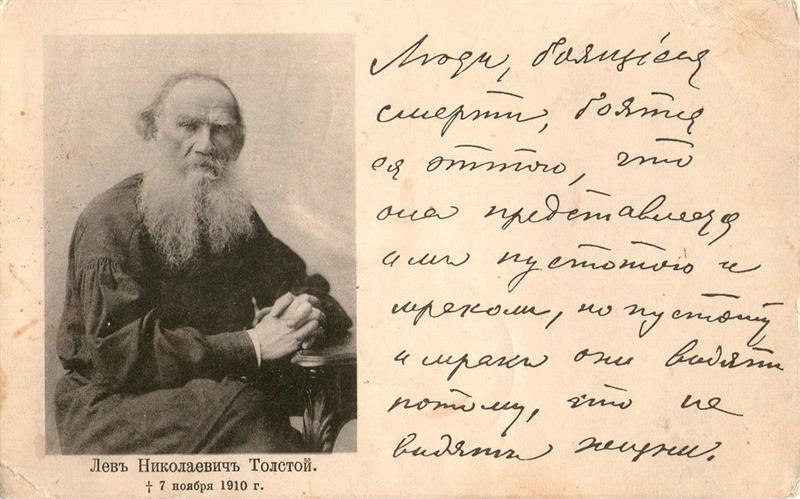 Люди, боящіеся
смерти, боятся
ея оттого, что
она представляется
имъ пустотою и
мракомъ, но пустоту
и мракъ они видятъ
потому, что не
видятъ жизни.
Левъ Николаевичъ Толстой.
† 7 ноября 1910 г.